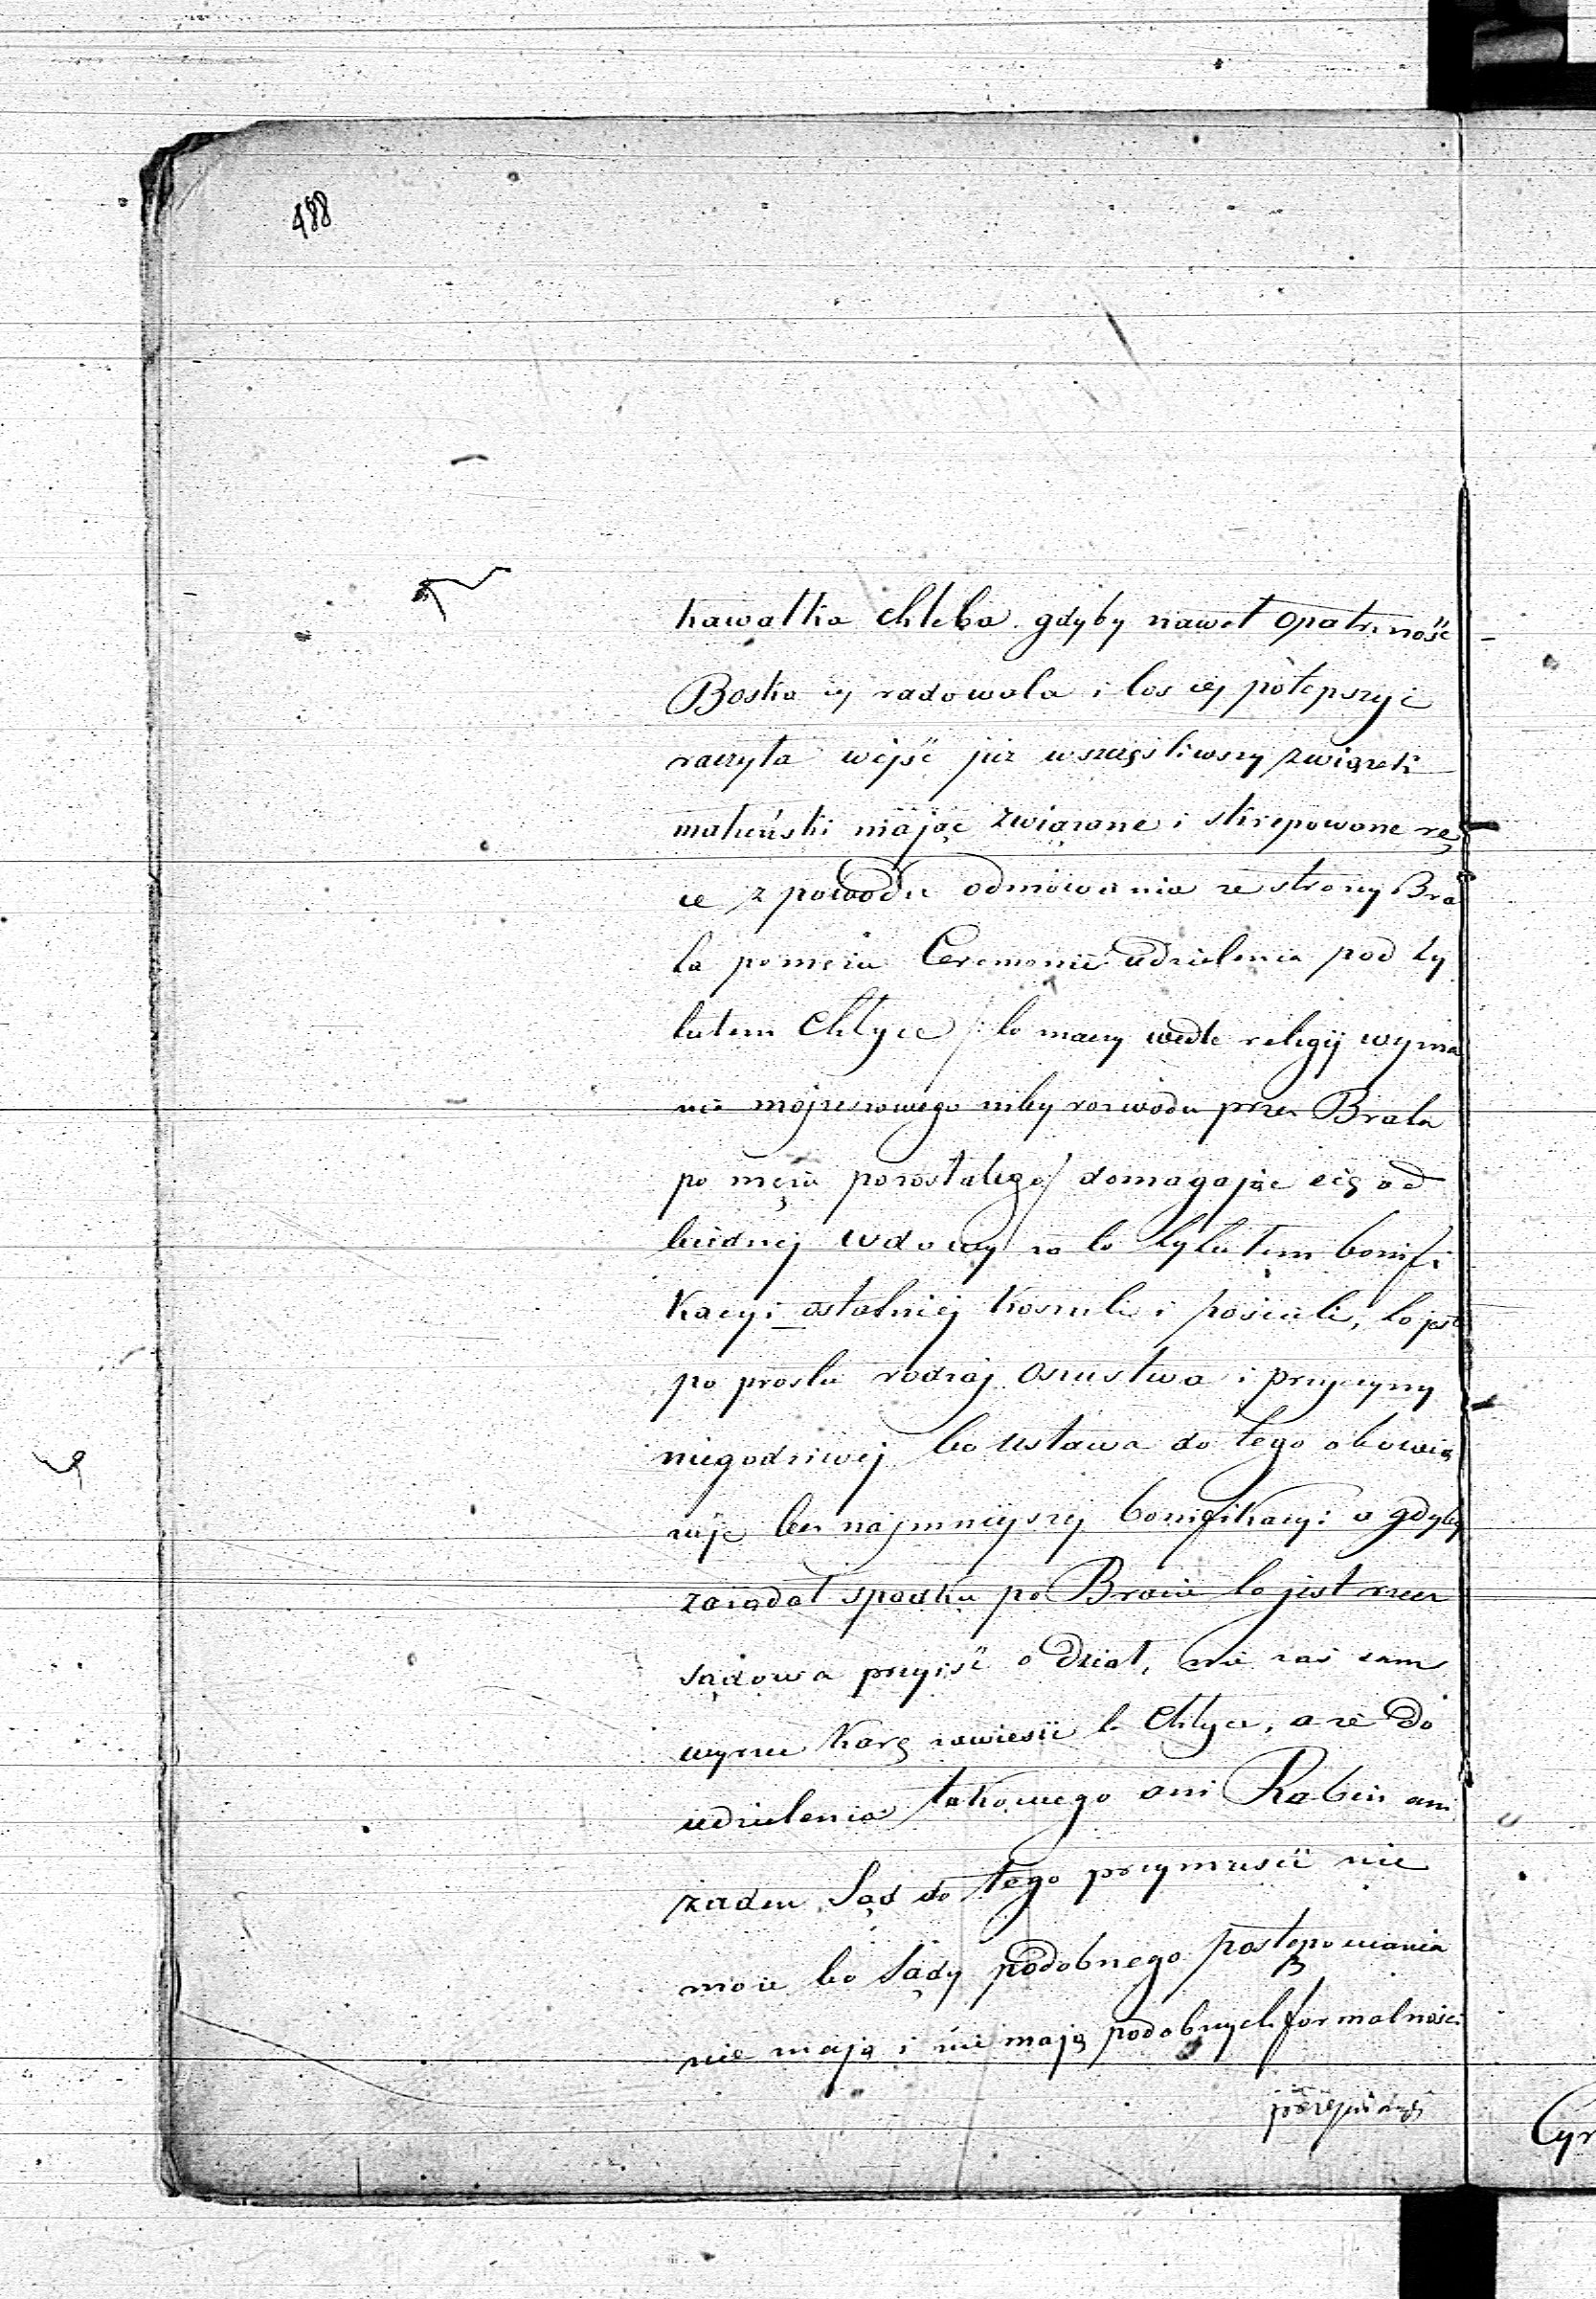 488
kawałka chleba gdyby nawet Opatrzność
Boska ią radowala i los iej polepszyć
raczyła wejść już w szczęśliwszy związek
małzeński mając związane i skrępowane rę
ce z powodu odmowania ze strony Bra
ta po mężu Ceremonii udzielenia pod ty
tułem Chlyce /: to znaczy wedle religij wyzna
nia mojżeszowego niby rozwodu przez Brata
po mężu pozostałego/ domagając się od
biednej wdowy za to tytułem bonifi
kacyi ostatniej koszuli i pościeli, to jest
po prostu rodzaj oszustwa i przyczyny
niegodziwej bo ustawa do tego obowią
zuje bez najmniejszej bonifikacyi a gdyby
zażądał spadku po Bracie to jest rzecz
sądowa przyjść o dział, nie zaś sam
wyrzec karę zawiesić to Chlyce, a że do
udzielenia takowego ani Rabin ani
żaden Sąd do tego przymusić nie
może bo Sądy podobnego postępowania
nie mają i nie mają podobnych formalności
Cyr